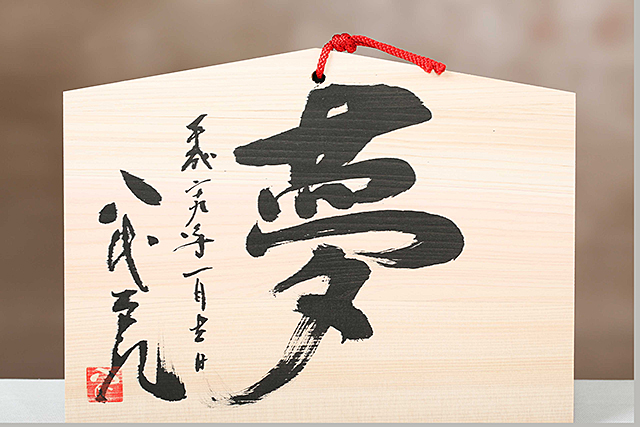 夢
平成二十九年一月吉日
八代亜紀